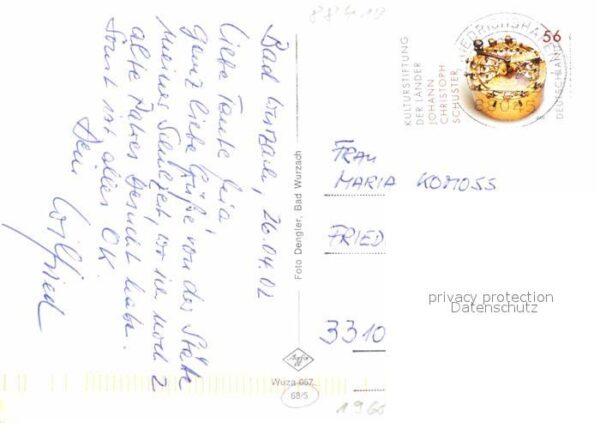 Bad Wurzach, 26.04.02
Liebe Tante Mia,
ganz liebe Grüße von der Stätte
meiner Schulzeit, wo ich noch 2
alte Patres besucht habe.
Sonst ist alles OK.
Dein Wilfried
Foto Dengler, Bad Wurzach
Agfa
Wuza 667
68/5
56
KULTURSTIFTUNG
DER LÄNDER
JOHANN
CHRISTOPH
SCHUSTER
DEUTSCHLAND
FRAU
MARIA KOMOSS
FRIED
3310
privacy protection
Datenschutz